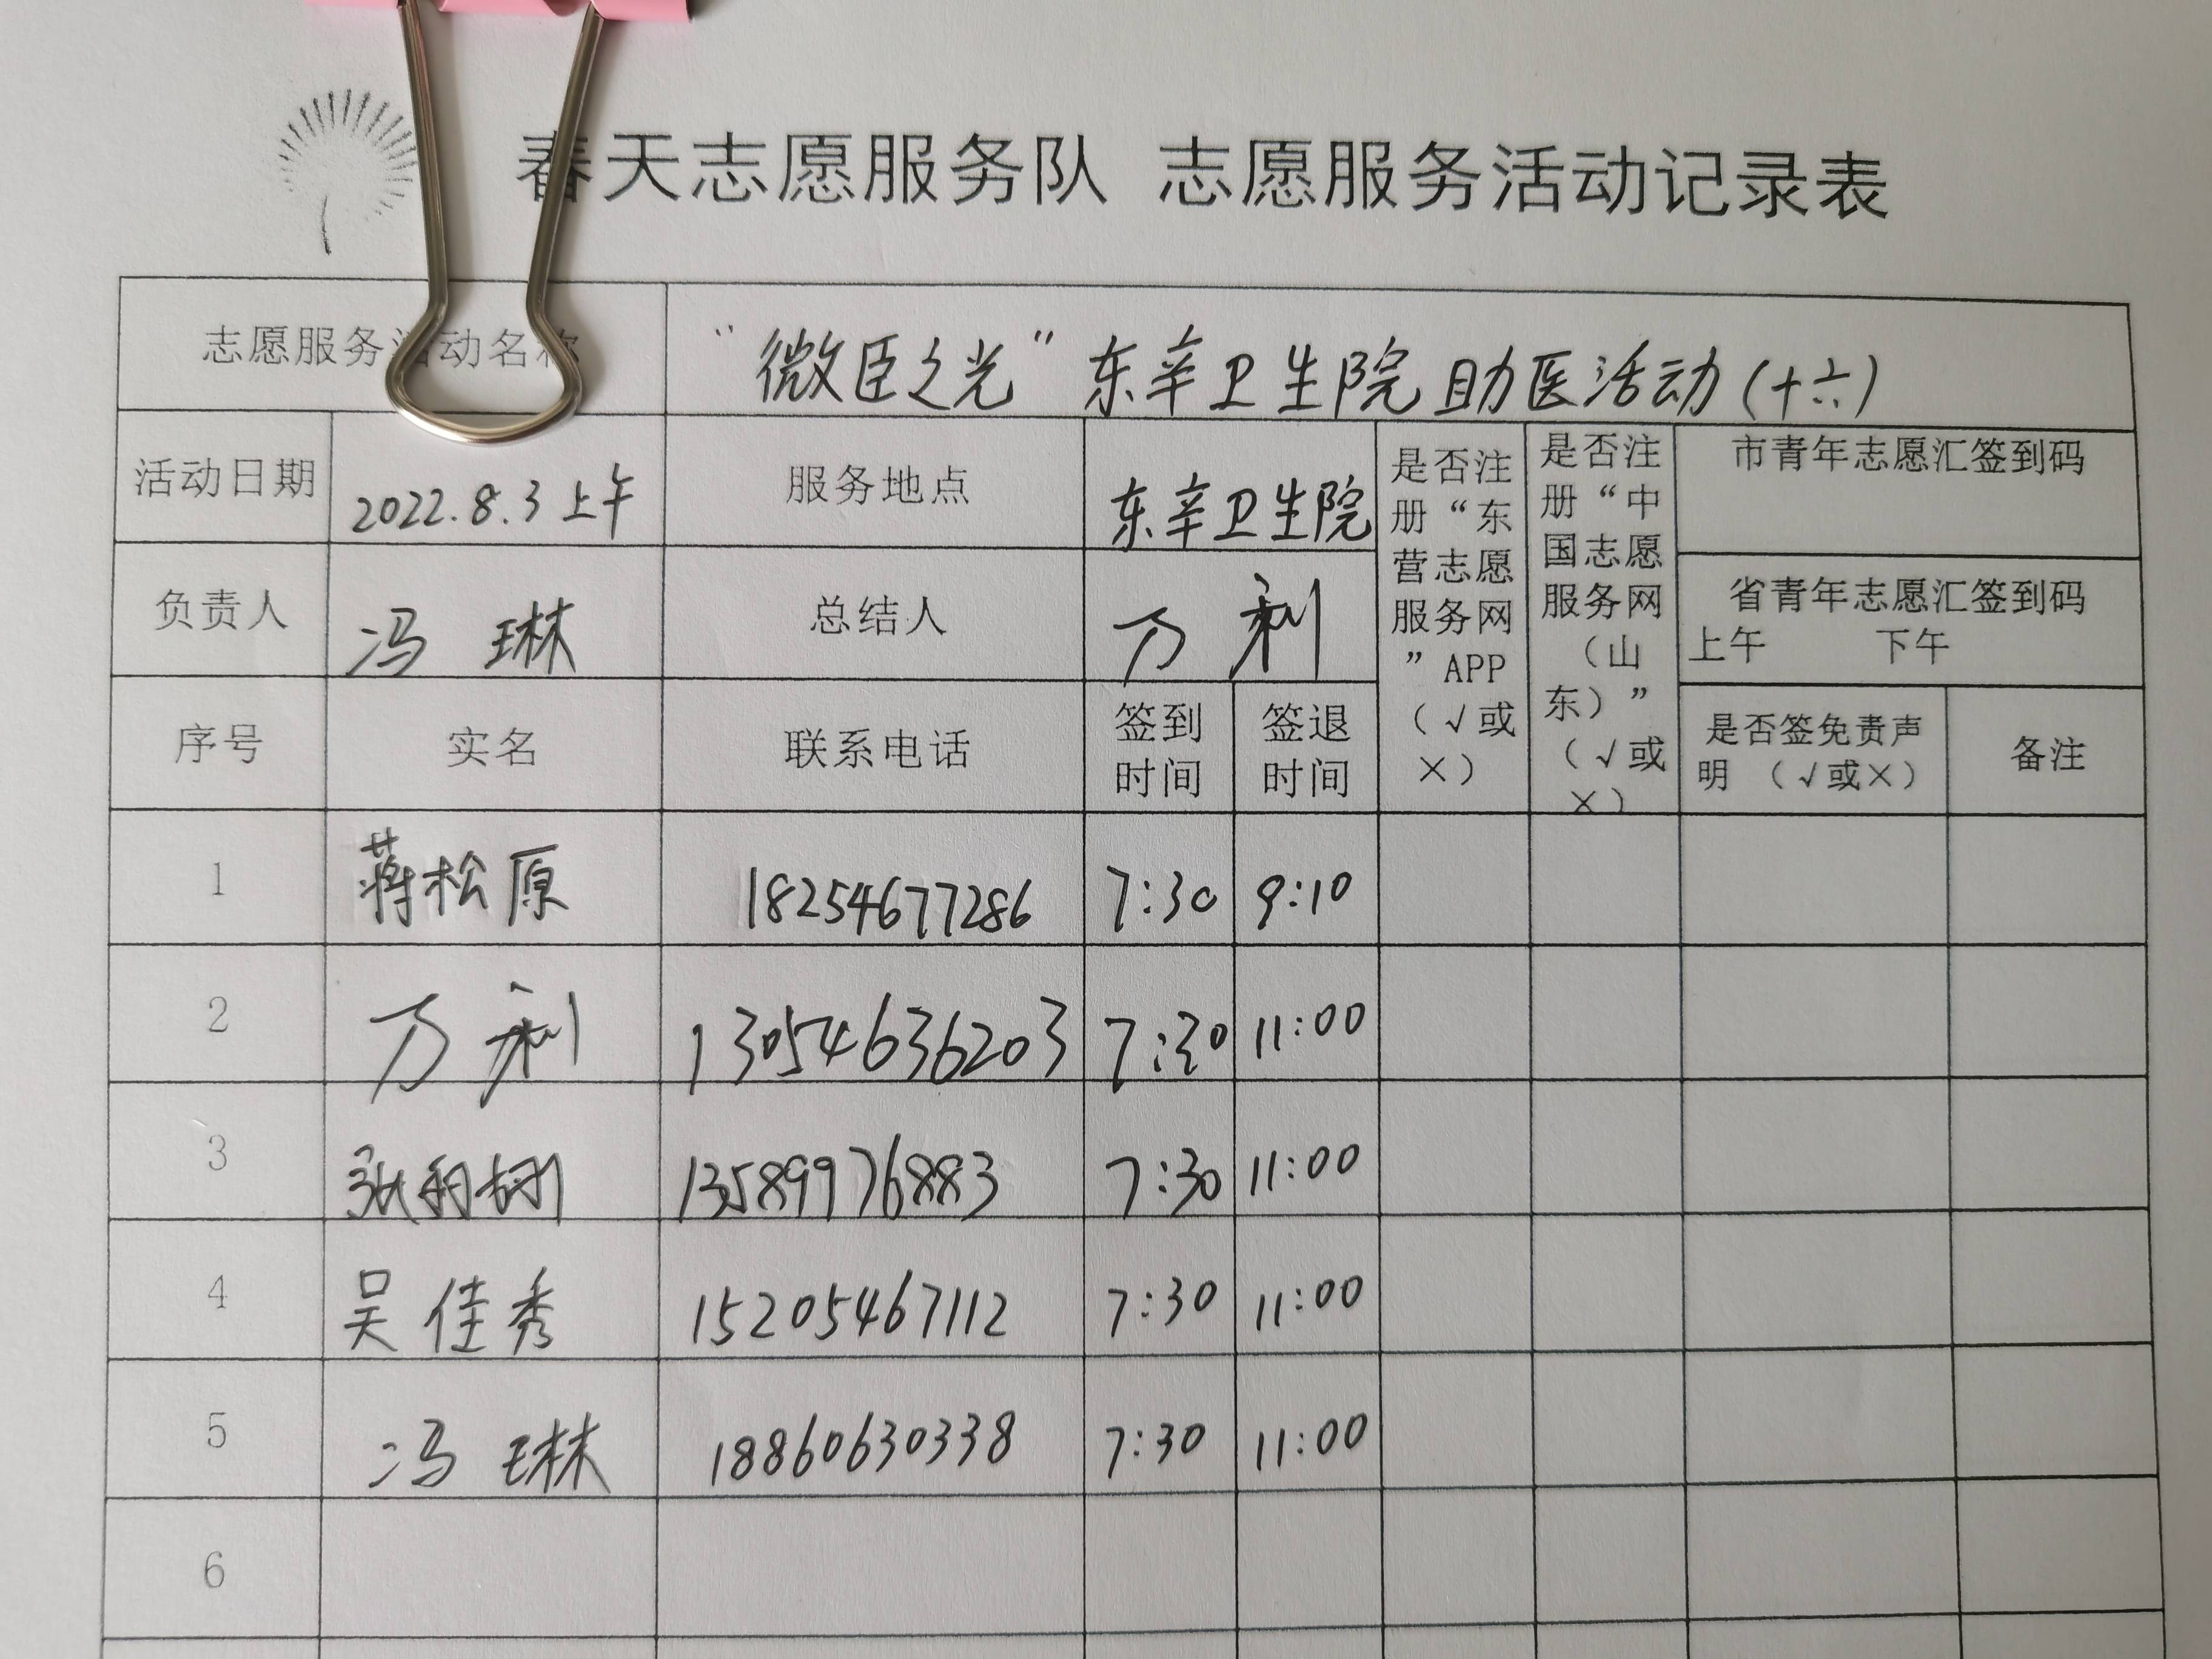 春天志愿服务队 志愿服务活动记录表
志愿服务活动名称 “微臣之光”东辛卫生院助医活动(十六)
活动日期 2022.8.3上午 服务地点 东辛卫生院 是否注册“东营志愿服务网”APP（√或×） 是否注册“中国志愿服务网（山东）”（√或×） 市青年志愿汇签到码
负责人 冯琳 总结人 万利 省青年志愿汇签到码
上午 下午
序号 实名 联系电话 签到时间 签退时间 是否签免责声明（√或×） 备注
1 蒋松原 18254677286 7:30 9:10
2 万利 13054636203 7:30 11:00
3 13589976883 7:30 11:00
4 吴佳秀 15205467112 7:30 11:00
5 冯琳 18860630338 7:30 11:00
6